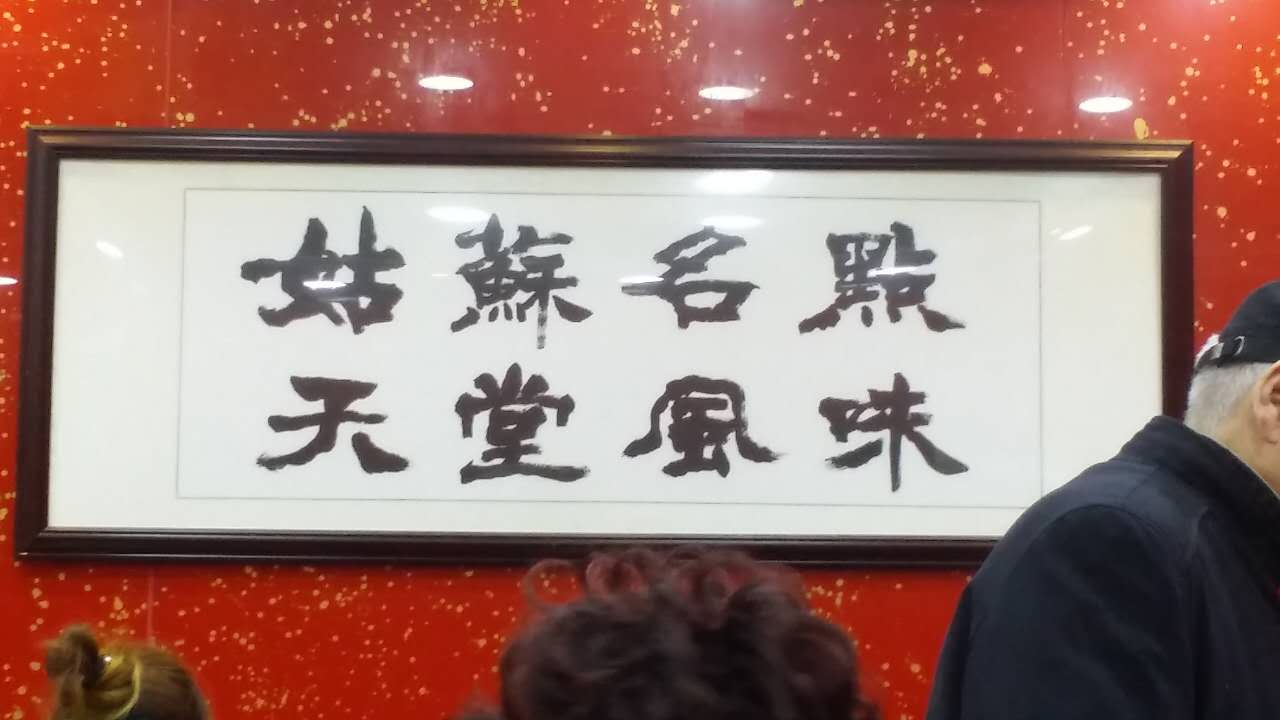 姑蘇名點
天堂風味